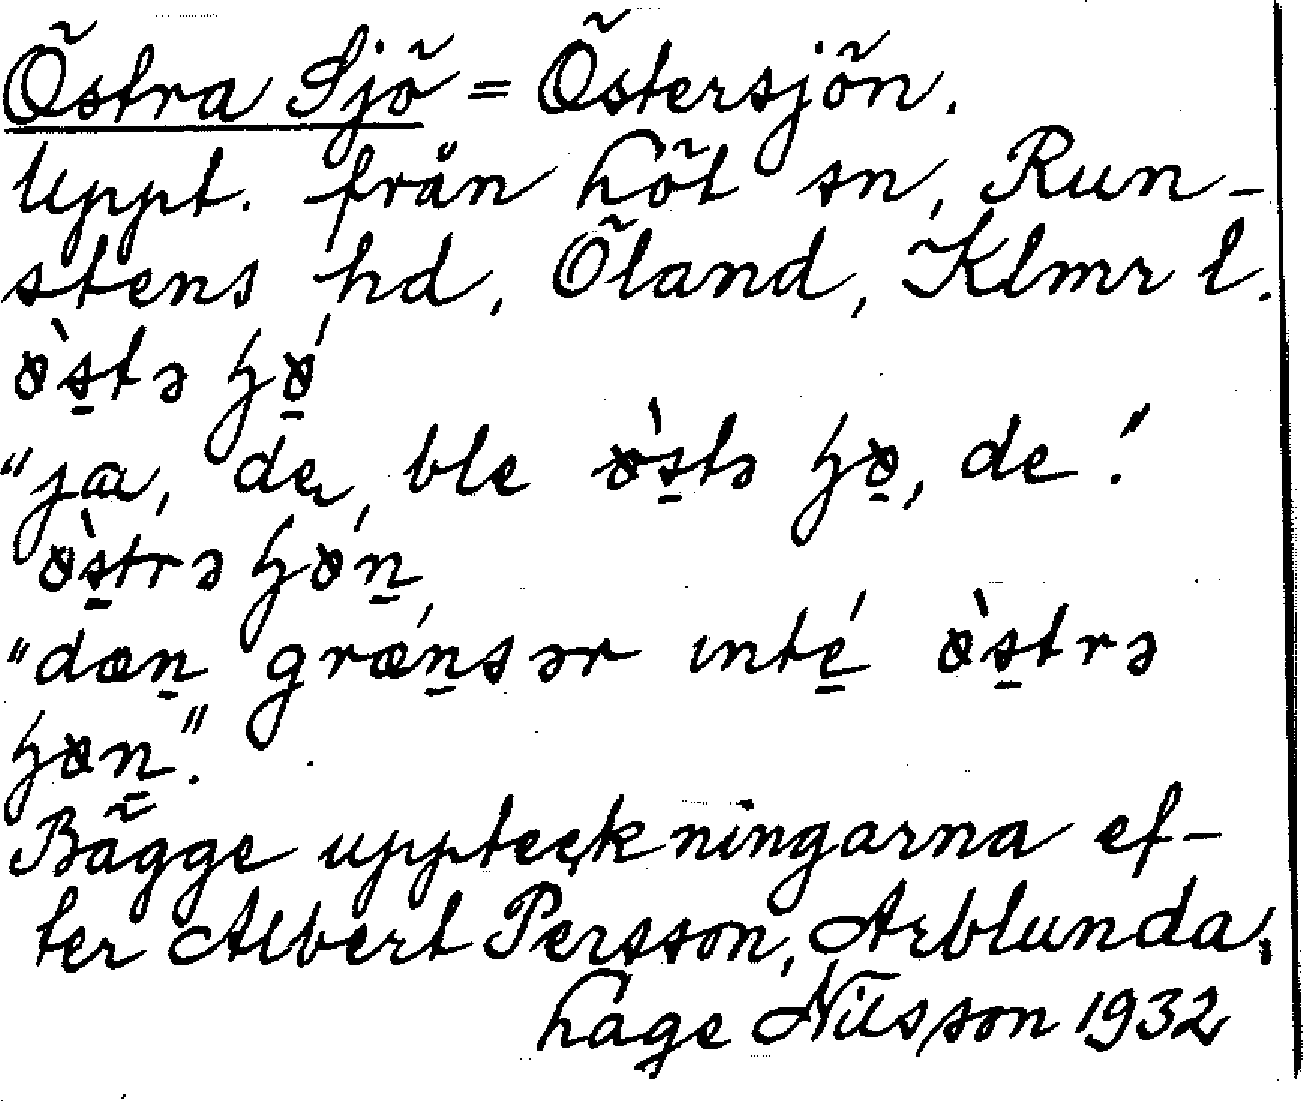 Östra Sjö = Östersjön.
Uppt. från Löt sn, Run-
stens hd, Öland, Klmr l.
ø̀s̠tə ɧǿ̠
"ja, de, ble ø̀s̠tə ɧø̠, de!"
ø̀s̠trə ɧøń̠
"dæn̠ grǽn̠sər ınté̠ ø̀s̠trə
ɧøn̠."
Bägge uppteckningarna ef-
ter Albert Persson, Arblunda,
Hage Nilsson 1932